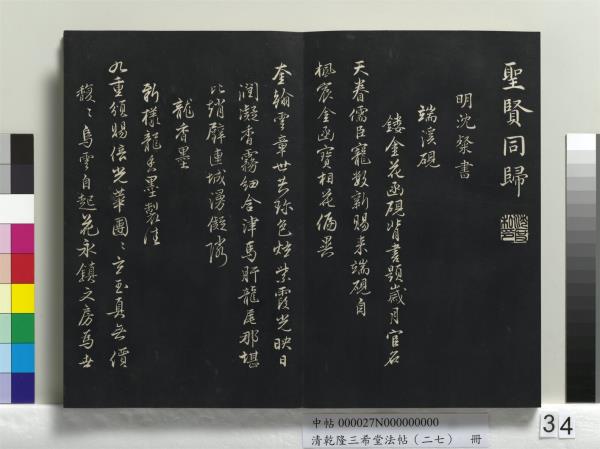 聖賢同歸
明沈粲書
端溪硯
鏤金花函硯背書題歲月官名
天眷儒臣寵數新賜来端硯自
楓宸金函寶相花偏異
奎翰雲章世共珍色炫紫霞光映日
潤凝香霧細含津馬肝龍尾那堪
比趙璧連城漫儗隣
龍香墨
新樣龍香墨製佳
九重頒賜倍光華團〻立玉真無價
馥〻烏雲自起花永鎮文房為世
中帖 000027N000000000
清乾隆三希堂法帖（二七） 冊
34